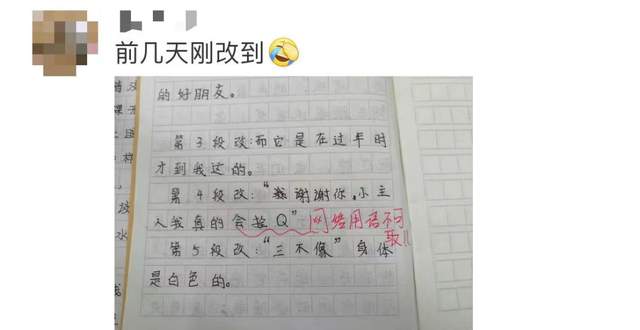 前几天刚改到🤣
的好朋友。
第3段改:而它是在过年时
才到我这的。
第4段改:“谢谢你,小主
人我真的会Q”
网络用语不可
取!!
第5段改:“三不像”身体
是白色的。